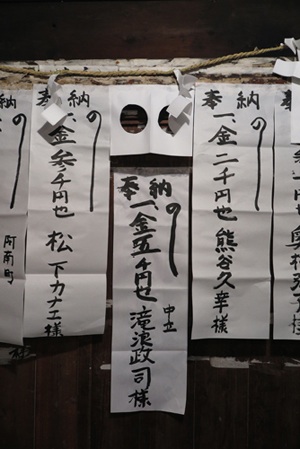 奉納
の
一、金二千円也 熊谷久幸様
奉納
の
一、金五千円也 滝浪政司様
中立
奉納
の
一、金参千円也 松下カナエ様
阿南町